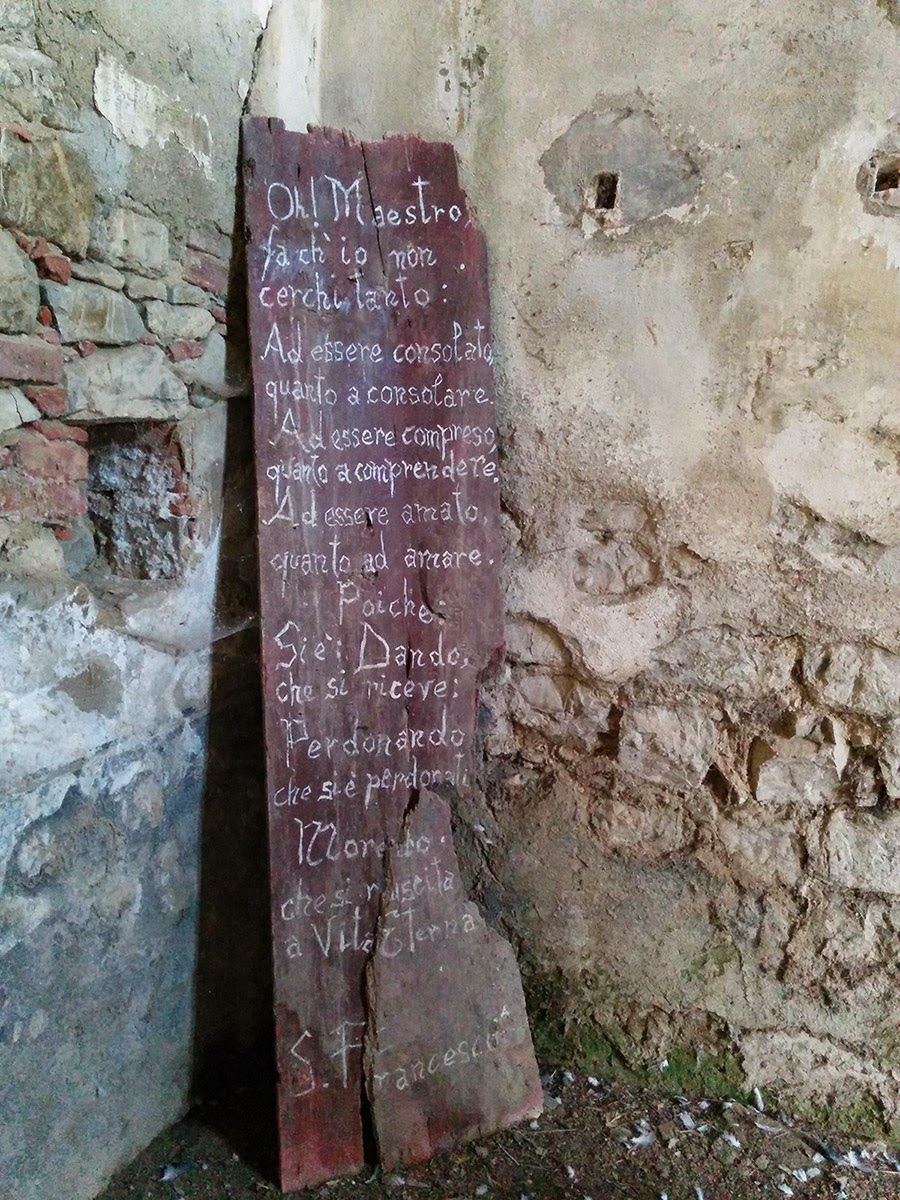 Oh! Maestro,
fa ch'io non
cerchi tanto:
Ad essere consolato,
quanto a consolare.
Ad essere compreso,
quanto a comprendere.
Ad essere amato,
quanto ad amare.
Poiche:
Si è: Dando,
che si riceve:
Perdonando
che si è perdonati
Morendo.
che si risuscita
a Vita Eterna
S. Francesco